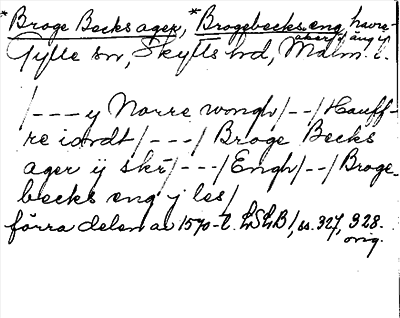 *Broge Becks ager, *Brogebecks eng, havre-
åker o. äng i
Gylle sn, Skytts hd, Malm. l.
/---y Norre wongh/--/Hauff-
re iordt/---/ Broge Becks
ager ÿ skr/---/Engh/--/Broge-
becks eng j les/
förra delen av 1570-t. LSLB 1, ss. 327, 328.
orig.